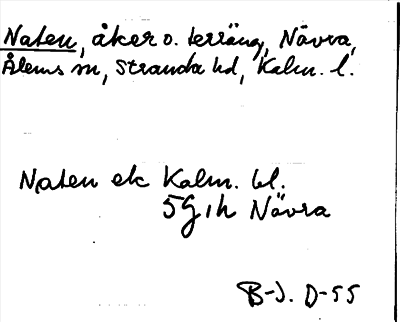 Naten, åker o. terräng, Nävra,
Ålems sn, Stranda hd, Kalm. l.
Naten ek Kalm. bl.
5G1h Nävra
B-J. D-55